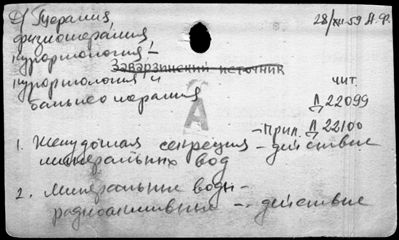 2/ Терапия
28/XII-59 А.Ф.
физиотерапия
курортология -
Заварзинский источник
курортология и
бальнеотерапия
чит.
Д 22099
А
Прил. Д 22100
1. Желудочная секреция - действие
минеральных вод
2. Минеральные воды -
радиоактивные - действие